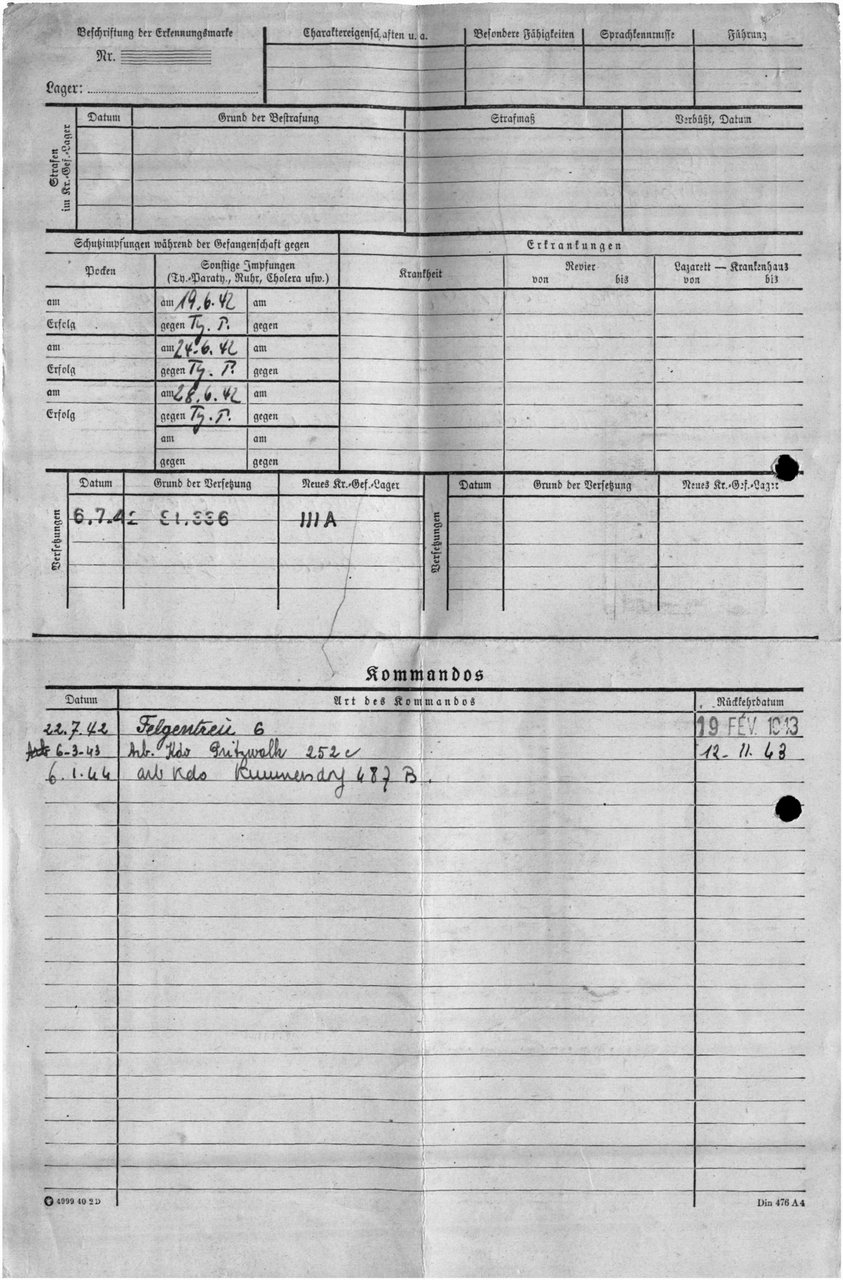 Beschriftung der Erkennungsmarke
Nr.
Lager:
Charaktereigenschaften u. a.
Besondere Fähigkeiten
Sprachkenntnisse
Führung
Strafen
im Kr.-Gef.-Lager
Datum
Grund der Bestrafung
Strafmaß
Verbüßt, Datum
Schutzimpfungen während der Gefangenschaft gegen
Erkrankungen
Pocken
Sonstige Impfungen
(Ty.-Paraty., Ruhr, Cholera usw.)
Krankheit
Revier
von bis
Lazarett — Krankenhaus
von bis
am am 19.6.42 am
Erfolg gegen Ty. P. gegen
am am 24.6.42 am
Erfolg gegen Ty. P. gegen
am am 28.6.42 am
Erfolg gegen Ty. P. gegen
am am
gegen gegen
Versetzungen
Datum Grund der Versetzung Neues Kr.-Gef.-Lager
6.7.42 336 III A
Versetzungen
Datum Grund der Versetzung Neues Kr.-Gef.-Lager
Kommandos
Datum Art des Kommandos Rückkehrdatum
22.7.42 Felgentreu 6 19 FÉV. 1943
6-3-43 Arb. Kdo Pritzwalk 252 c 12-11.43
6.1.44 arb Kdo Kummersdorf 487 B.
4999 40 2 D
Din 476 A 4